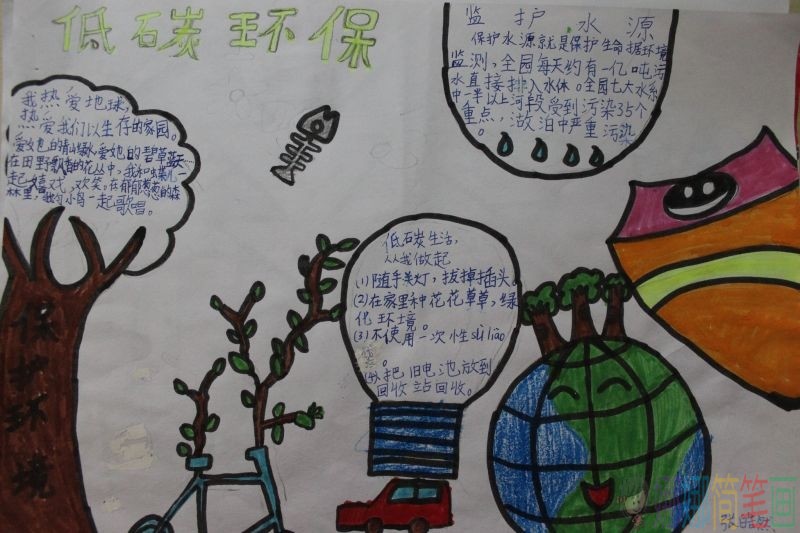 低碳环保
监护水源
保护水源就是保护生命据环境
监测,全园每天约有一亿吨污
水直接排入水休。全国七大水系
中一半以上河段受到污染35个
重点,湖泊中严重污染
我热爱地球,
热爱我们以生存的家园。
爱她的青山绿水爱她的碧草蓝天
在田野飘香的花丛中,我和水果儿一
起嬉戏,欢笑。在郁郁葱葱的森
林里,我与小鸟一起歌唱。
保护环境
低碳生活,
从我做起
(1)随手关灯,拔掉插头。
(2)在家里种花花草草,绿
化环境。
(3)不使用一次性sù liào
(4)把旧电池放到
回收站回收。
简笔画
张皓然